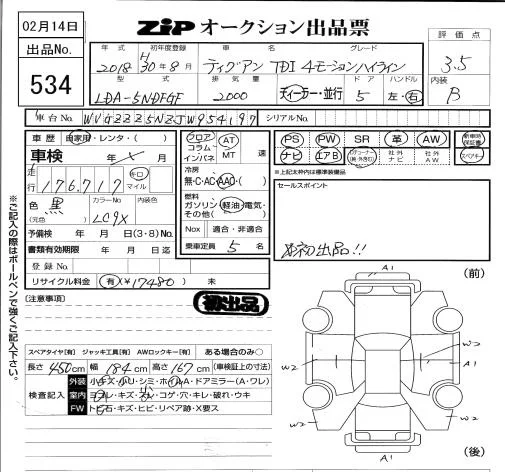 02月14日
出品No.
534
ZiP オークション出品票
年式 初年度登録 車名 グレード
2018 H30年8月 ティグアン TDI 4モーションハイライン
型式 排気量 ドア ハンドル
LDA-5NDFGF 2000 ディーラー・並行 5 左・右
評価点
3.5
内装
B
車台No. WVGZZZ5NZJW954197 シリアルNo.
車歴 自家用・レンタ・( )
車検 年 月
走行 176,717 キロ マイル
色 黒 (元色) カラーNo. LC9X 内装色
予備検 年 月 日(3・8)No.
書類有効期限 年 月 日迄
登録No.
リサイクル料金 有(¥17480) 未
フロア コラム インパネ AT MT 速
冷房
無・C・AC・AAC・( )
燃料
ガソリン・軽油・電気・その他( )
Nox 適合・非適合
乗車定員 5 名
PS PW SR 革 AW 新車時保証書
ナビ エアB 社外ナビ 社外AW スペアキー
※上記太枠内は標準装備品
セールスポイント
初出品!!
(注意事項)
初出品
※ご記入の際はボールペンで強くご記入下さい。
スペアタイヤ[有] ジャッキ工具[有] AWロックキー[有] ある場合のみ○
長さ 450cm 幅 184cm 高さ 167cm (車検証上の寸法)
検査記入
外装 小キズ・小・シミ・ホ・A・ドアミラー(A・ワレ)
室内 ヨゴレ・キズ・コゲ・穴・キレ・破れ・ウキ
FW トビ石・キズ・ヒビ・リペア跡・X要ス
(前)
A1
W2
A1
W2
W2
A1
(後)